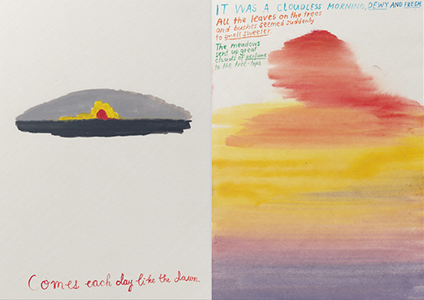 IT WAS A CLOUDLESS MORNING, DEWY AND FRESH
All the leaves on the trees
and bushes seemed suddenly
to smell sweeter.
The meadows
sent up great
clouds of perfume
to the tree-tops.
Comes each day like the dawn.